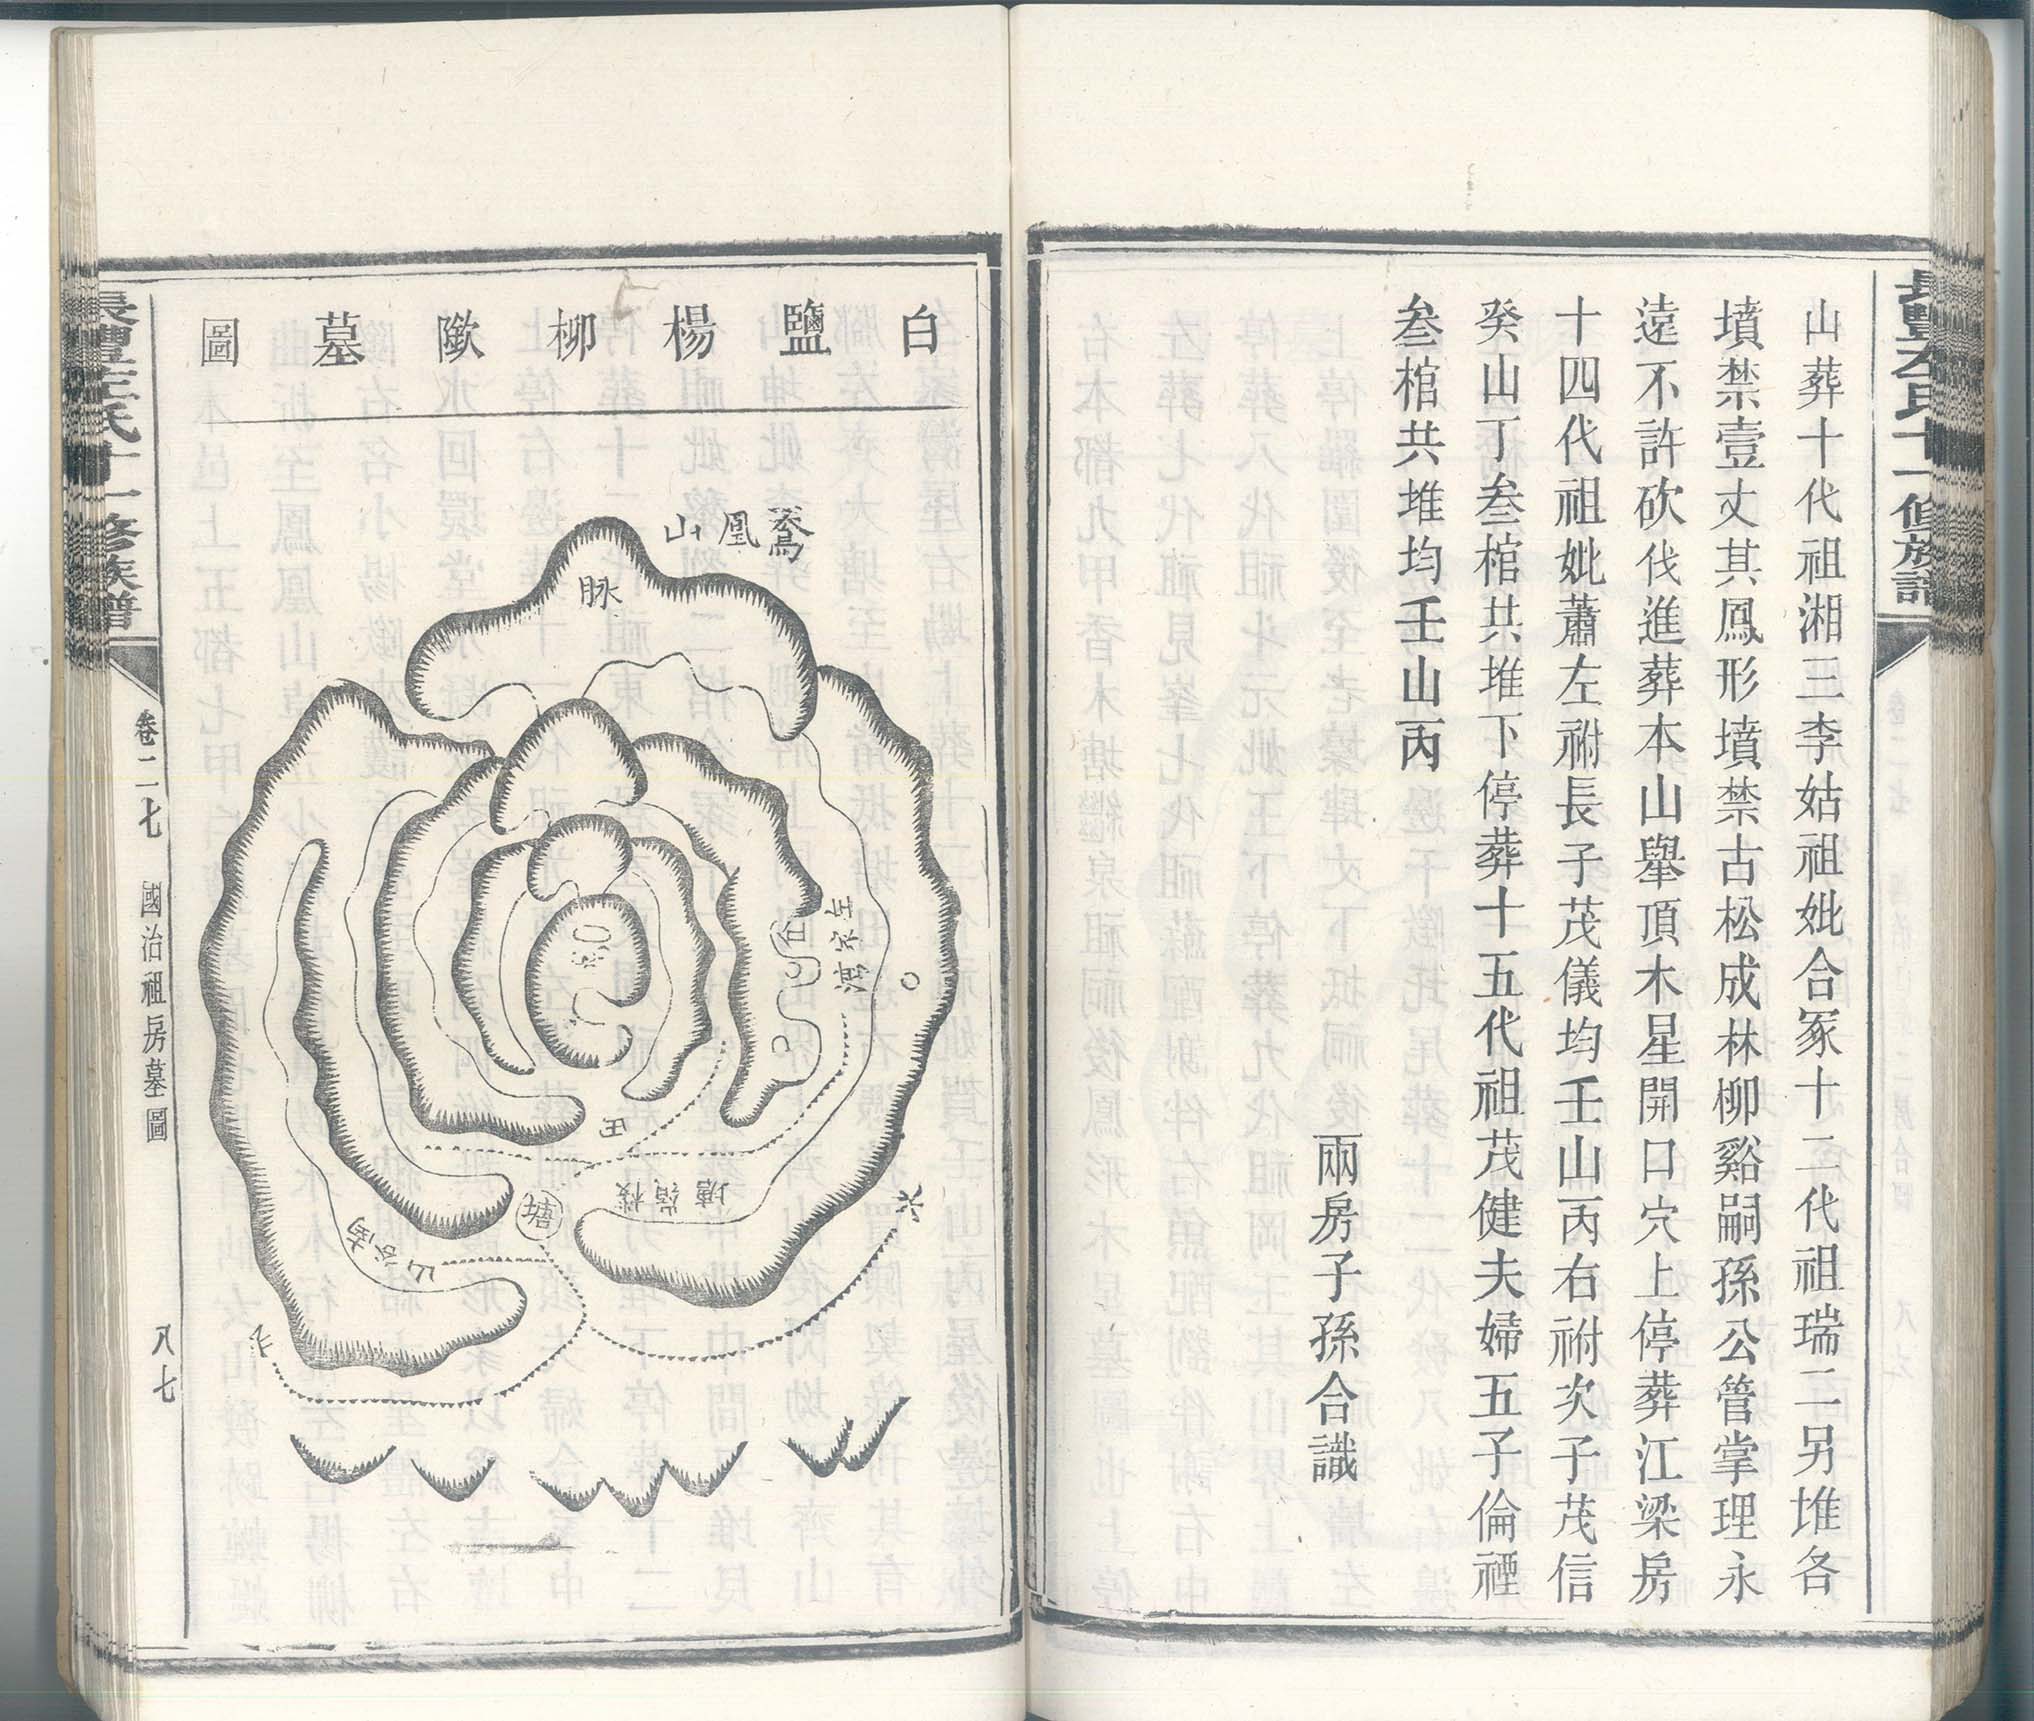 山葬十代祖湘三李姑祖妣合冢十二代祖瑞二另堆各
墳禁壹丈其鳳形墳禁古松成林柳谿嗣孫公管掌理永
遠不許砍伐進葬本山舉頂木星開口穴上停葬江梁房
十四代祖妣蕭左祔長子茂儀均壬山丙右祔次子茂信
癸山丁叁棺共堆下停葬十五代祖茂健夫婦五子倫禋
叁棺共堆均壬山丙
兩房子孫合識
白鹽楊柳歟墓圖
鸞凰山
脉
左家灣
塘
山
壬
卷二七
國治祖房墓圖
八七
長豐左氏十一修族譜
長豐左氏十一修族譜